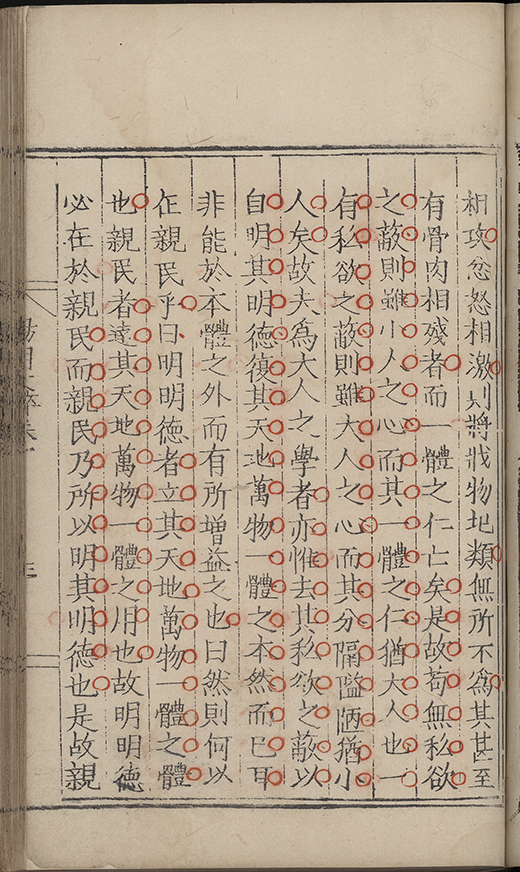 相攻忿怒相激則將戕物圮類無所不為其甚至
有骨肉相殘者而一體之仁亡矣是故苟無私欲
之蔽則雖小人之心而其一體之仁猶大人也一
有私欲之蔽則雖大人之心而其分隔隘陋猶小
人矣故夫為大人之學者亦惟去其私欲之蔽以
自明其明德復其天地萬物一體之本然而已耳
非能於本體之外而有所增益之也曰然則何以
在親民乎曰明明德者立其天地萬物一體之體
也親民者達其天地萬物一體之用也故明明德
必在於親民而親民乃所以明其明德也是故親